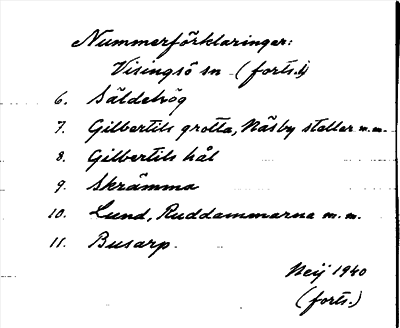 Nummerförklaringar:
Visingsö sn (forts.)
6. Säldehög
7. Gilbertils grotta, Näsby staller m.m.
8. Gilbertils hål
9. Skrämma
10. Lund, Ruddammarna m.m.
11. Busarp.
Neij 1940
(forts.)